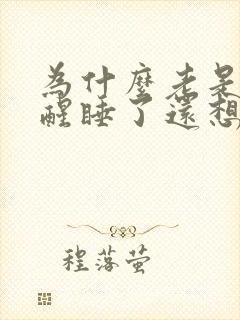 為什麼老是
醒睡了還想
程落萤